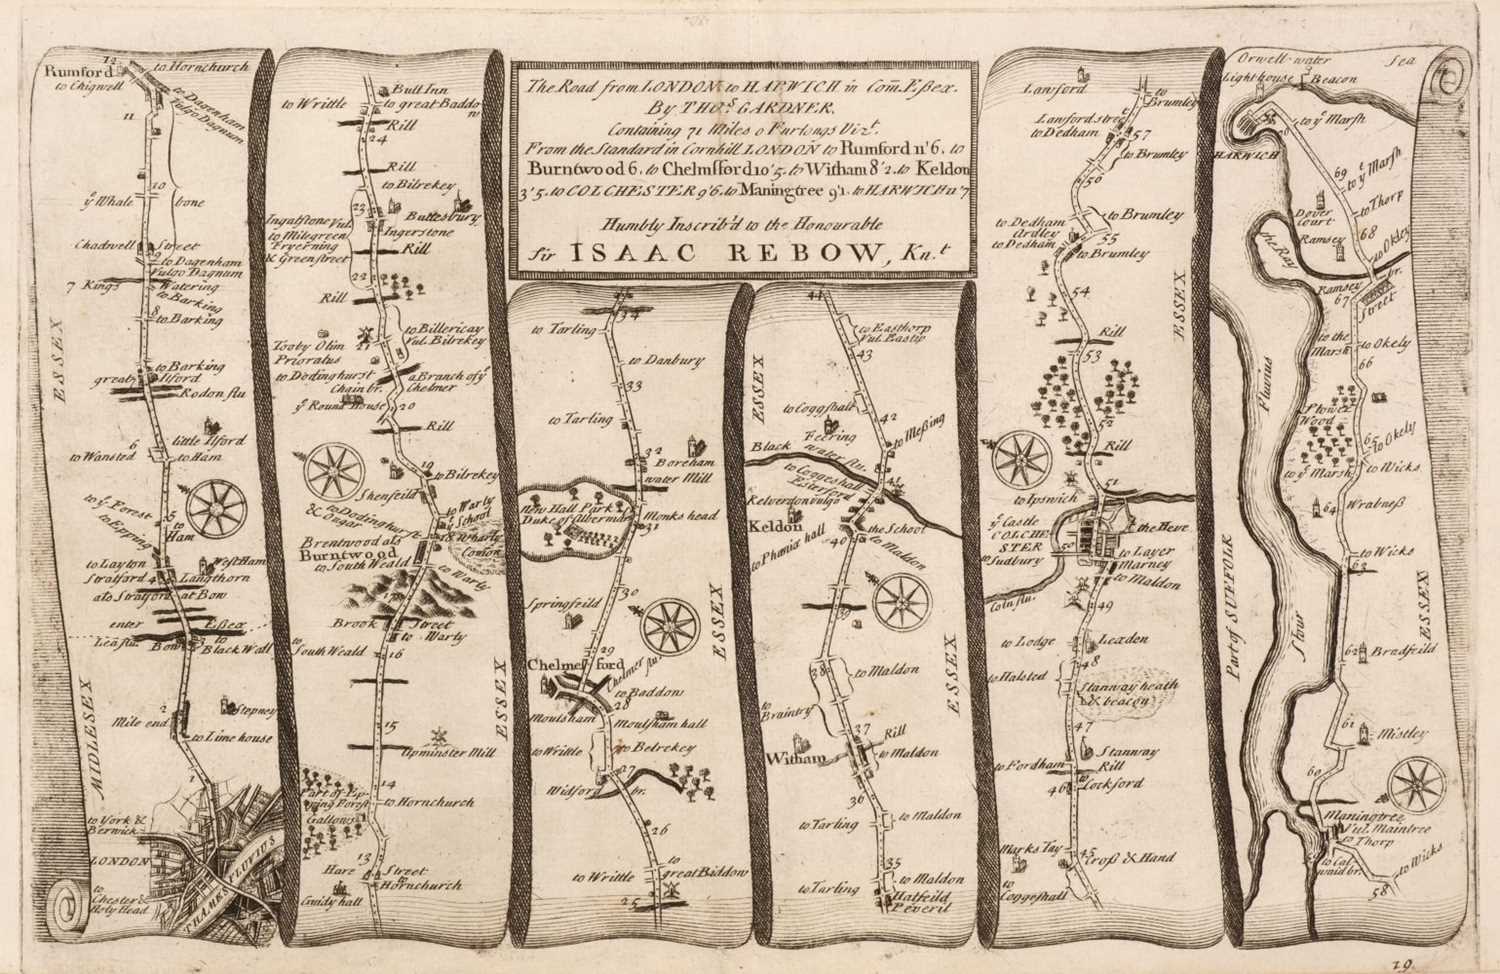 The Road from LONDON to HARWICH in Com̄ Eſsex.
By THOˢ. GARDNER.
Containing 71 Miles 0 Furlongs Vizᵗ.
From the Standard in Cornhill LONDON to Rumford 11'6, to
Burntwood 6, to Chelmsford 10'5, to Witham 8'2, to Keldon
3'5, to COLCHESTER 9'6, to Maningtree 9'1, to HARWICH 11'7
Humbly Inscrib'd to the Honourable
Sir ISAAC REBOW, Knᵗ.
12
Rumford
to Hornchurch
to Chigwell
to Dagenham
Vulgo Dagnum
11
10
yᵉ Whale
bone
Chadwell Street
9
to Dagenham
Vulgo Dagnum
7 Kings
Watering
to Barking
8
to Barking
ESSEX
to Barking
great Ilford
Rodon flu
little Ilford
6
to Wansted
to Ham
to yᵉ Forest
5
to Ham
to Epping
West Ham
to Layton
Stratford 4
Langthorn
als Stratford at Bow
enter Eſsex
Lea flu.
Bow 3
to Black Wall
MIDLESEX
2
Stepney
Mile end
to Lime house
1
to York &
Berwick
LONDON
THAMES FLUVIUS
to Chester &
Holy Head
Bull Inn
to Writtle
to great Baddon
Rill
24
Rill
to Bilrekey
23
Buttesbury
Ingatstone Vul
Ingerstone
to Milsgreen
Fryerning
& Greenstreet
Rill
22
Rill
to Billericay
Vul. Bilrekey
Tooby Olim
Prioratus
21
to Dodinghurst
a Branch of yᵉ
Chelmer
Chain br.
yᵉ Round House
20
Rill
19
to Bilrekey
Shenfeild
to Dodinghurst
& Ongar
to Warly
yᵉ School
18
Warly
Comon
Brentwood als
Burntwood
to South Weald
to Warly
17
Brook Street
to Warly
to South Weald
16
ESSEX
15
Upminster Mill
14
Part of Epping Forest
to Hornchurch
Gallows
13
Hare Street
Hornchurch
Guidy hall
34
to Tarling
to Danbury
33
to Tarling
32
Boreham
water Mill
New Hall Park
Duke of Albermar
31
Monks head
30
Springfeild
29
ESSEX
Chelmesford
Chelmer flu.
to Baddow
28
Moulsham
Moulsham hall
to Writtle
to Belrekey
27
Widford br.
26
to Writtle
to great Baddow
25
44
to Easthorp
Vul. Eastp
43
ESSEX
to Coggshall
42
Feering
to Meſsing
Black water flu.
to Coggeshall
Easterford
41
Kelverdon vulgo
Keldon
the School
to Phœnix hall
40
to Maldon
39
to Maldon
38
ESSEX
to Braintry
37
Rill
Witham
to Maldon
36
to Tarling
to Maldon
35
to Tarling
to Maldon
Hatfeild
Peveril
Lanford
to Brumley
Lanford street
to Dedham
57
to Brumley
56
to Dedham
to Brumley
Ardley
to Dedham
55
to Brumley
ESSEX
54
Rill
53
52
Rill
51
to Ipswich
yᵉ Castle
COLCHESTER
the Heve
50
to Sudbury
to Layer
Marney
to Maldon
Coln flu.
49
to Lodge
Lexdon
48
to Halsted
Stanway heath
& beacon
47
Stanway
Rill
to Fordham
46
to Cockford
Marks Tay
45
Croſs & Hand
to Coggeshall
Orwell water
Sea
Light house
Beacon
70
to yᵉ Marsh
HARWICH
69
to yᵉ Marsh
Dover court
to Thorp
68
the Ray
Ramsey
to Okley
Ramsey br.
67
Street
to the Marsh
to Okely
66
Stower Wood
65
to Okely
to yᵉ Marsh
to Wicks
64
Wrabneſs
to Wicks
63
Part of SUFFOLK
Fluvius Stour
ESSEX
62
Bradfeild
61
Mistley
60
Maningtree
Vul. Maintree
59
to Thorp
to Cat
waid br.
to Wicks
58
19